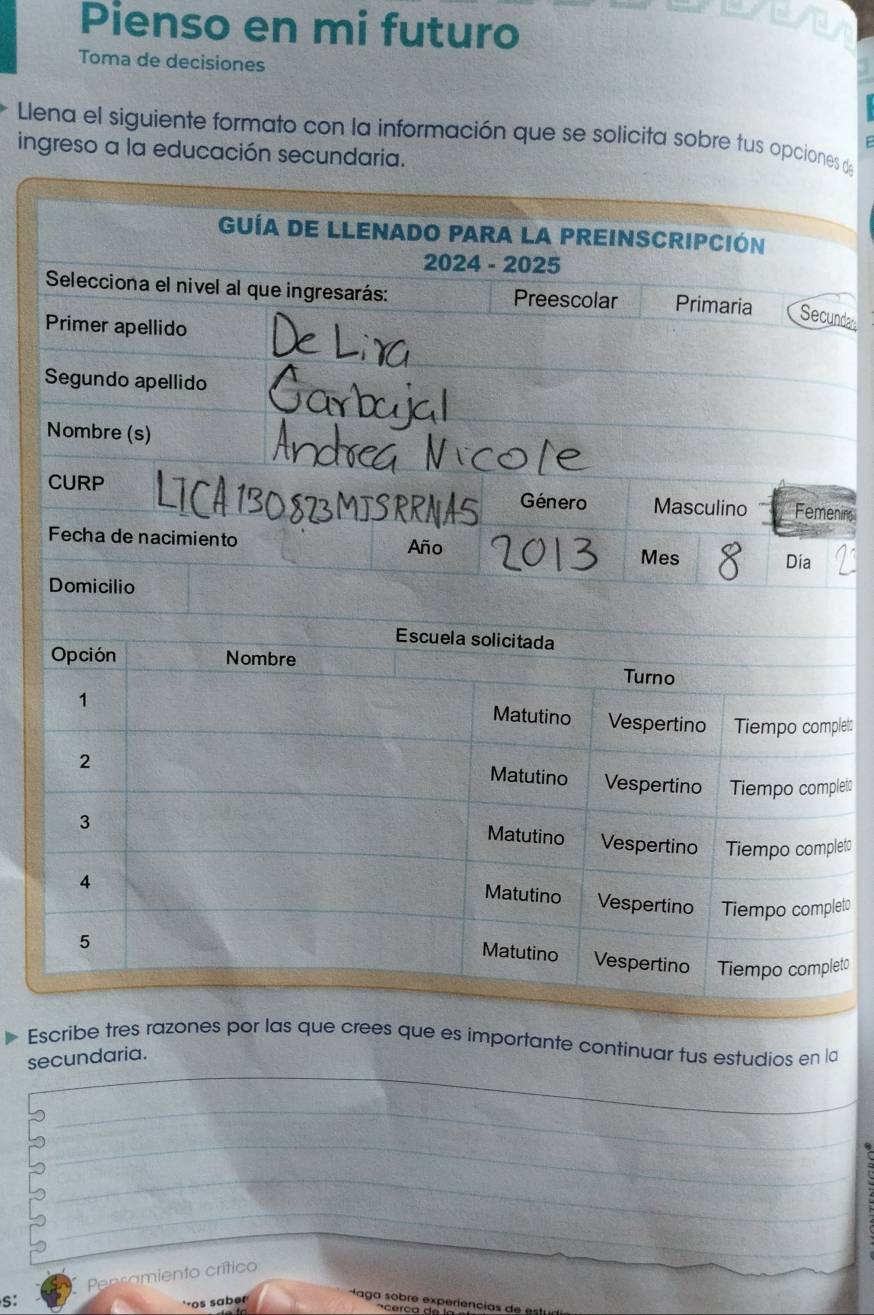 Pienso en mi futuro
Toma de decisiones
Llena el siguiente formato con la información que se solicita sobre tus opciones de
ingreso a la educación secundaria.
GUÍA DE LLENADO PARA LA PREINSCRIPCIÓN
2024 - 2025
Selecciona el nivel al que ingresarás: Preescolar Primaria Secundar
Primer apellido De Lira
Segundo apellido Carbajal
Nombre (s) Andrea Nicole
CURP LICA130823MJSRRNA5 Género Masculino Femenino
Fecha de nacimiento Año 2013 Mes 8 Día 23
Domicilio
Escuela solicitada
Opción Nombre Turno
1 Matutino Vespertino Tiempo completo
2 Matutino Vespertino Tiempo completo
3 Matutino Vespertino Tiempo completo
4 Matutino Vespertino Tiempo completo
5 Matutino Vespertino Tiempo completo
Escribe tres razones por las que crees que es importante continuar tus estudios en la
secundaria.
Pensamiento crítico
s:
daga sobre experiencias de